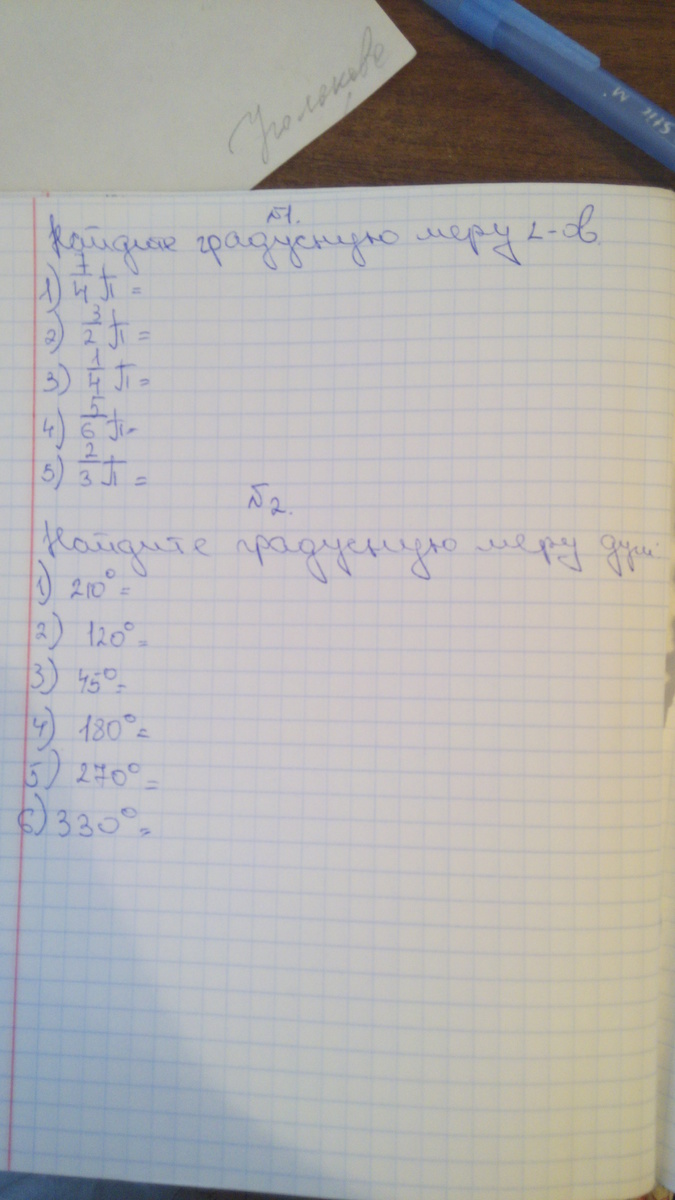 №1.
Найдите градусную меру ∠-ов
1) 7/4 π =
2) 3/2 π =
3) 1/4 π =
4) 5/6 π =
5) 2/3 π =
№2.
Найдите градусную меру дуги:
1) 210° =
2) 120° =
3) 45° =
4) 180° =
5) 270° =
6) 330° =